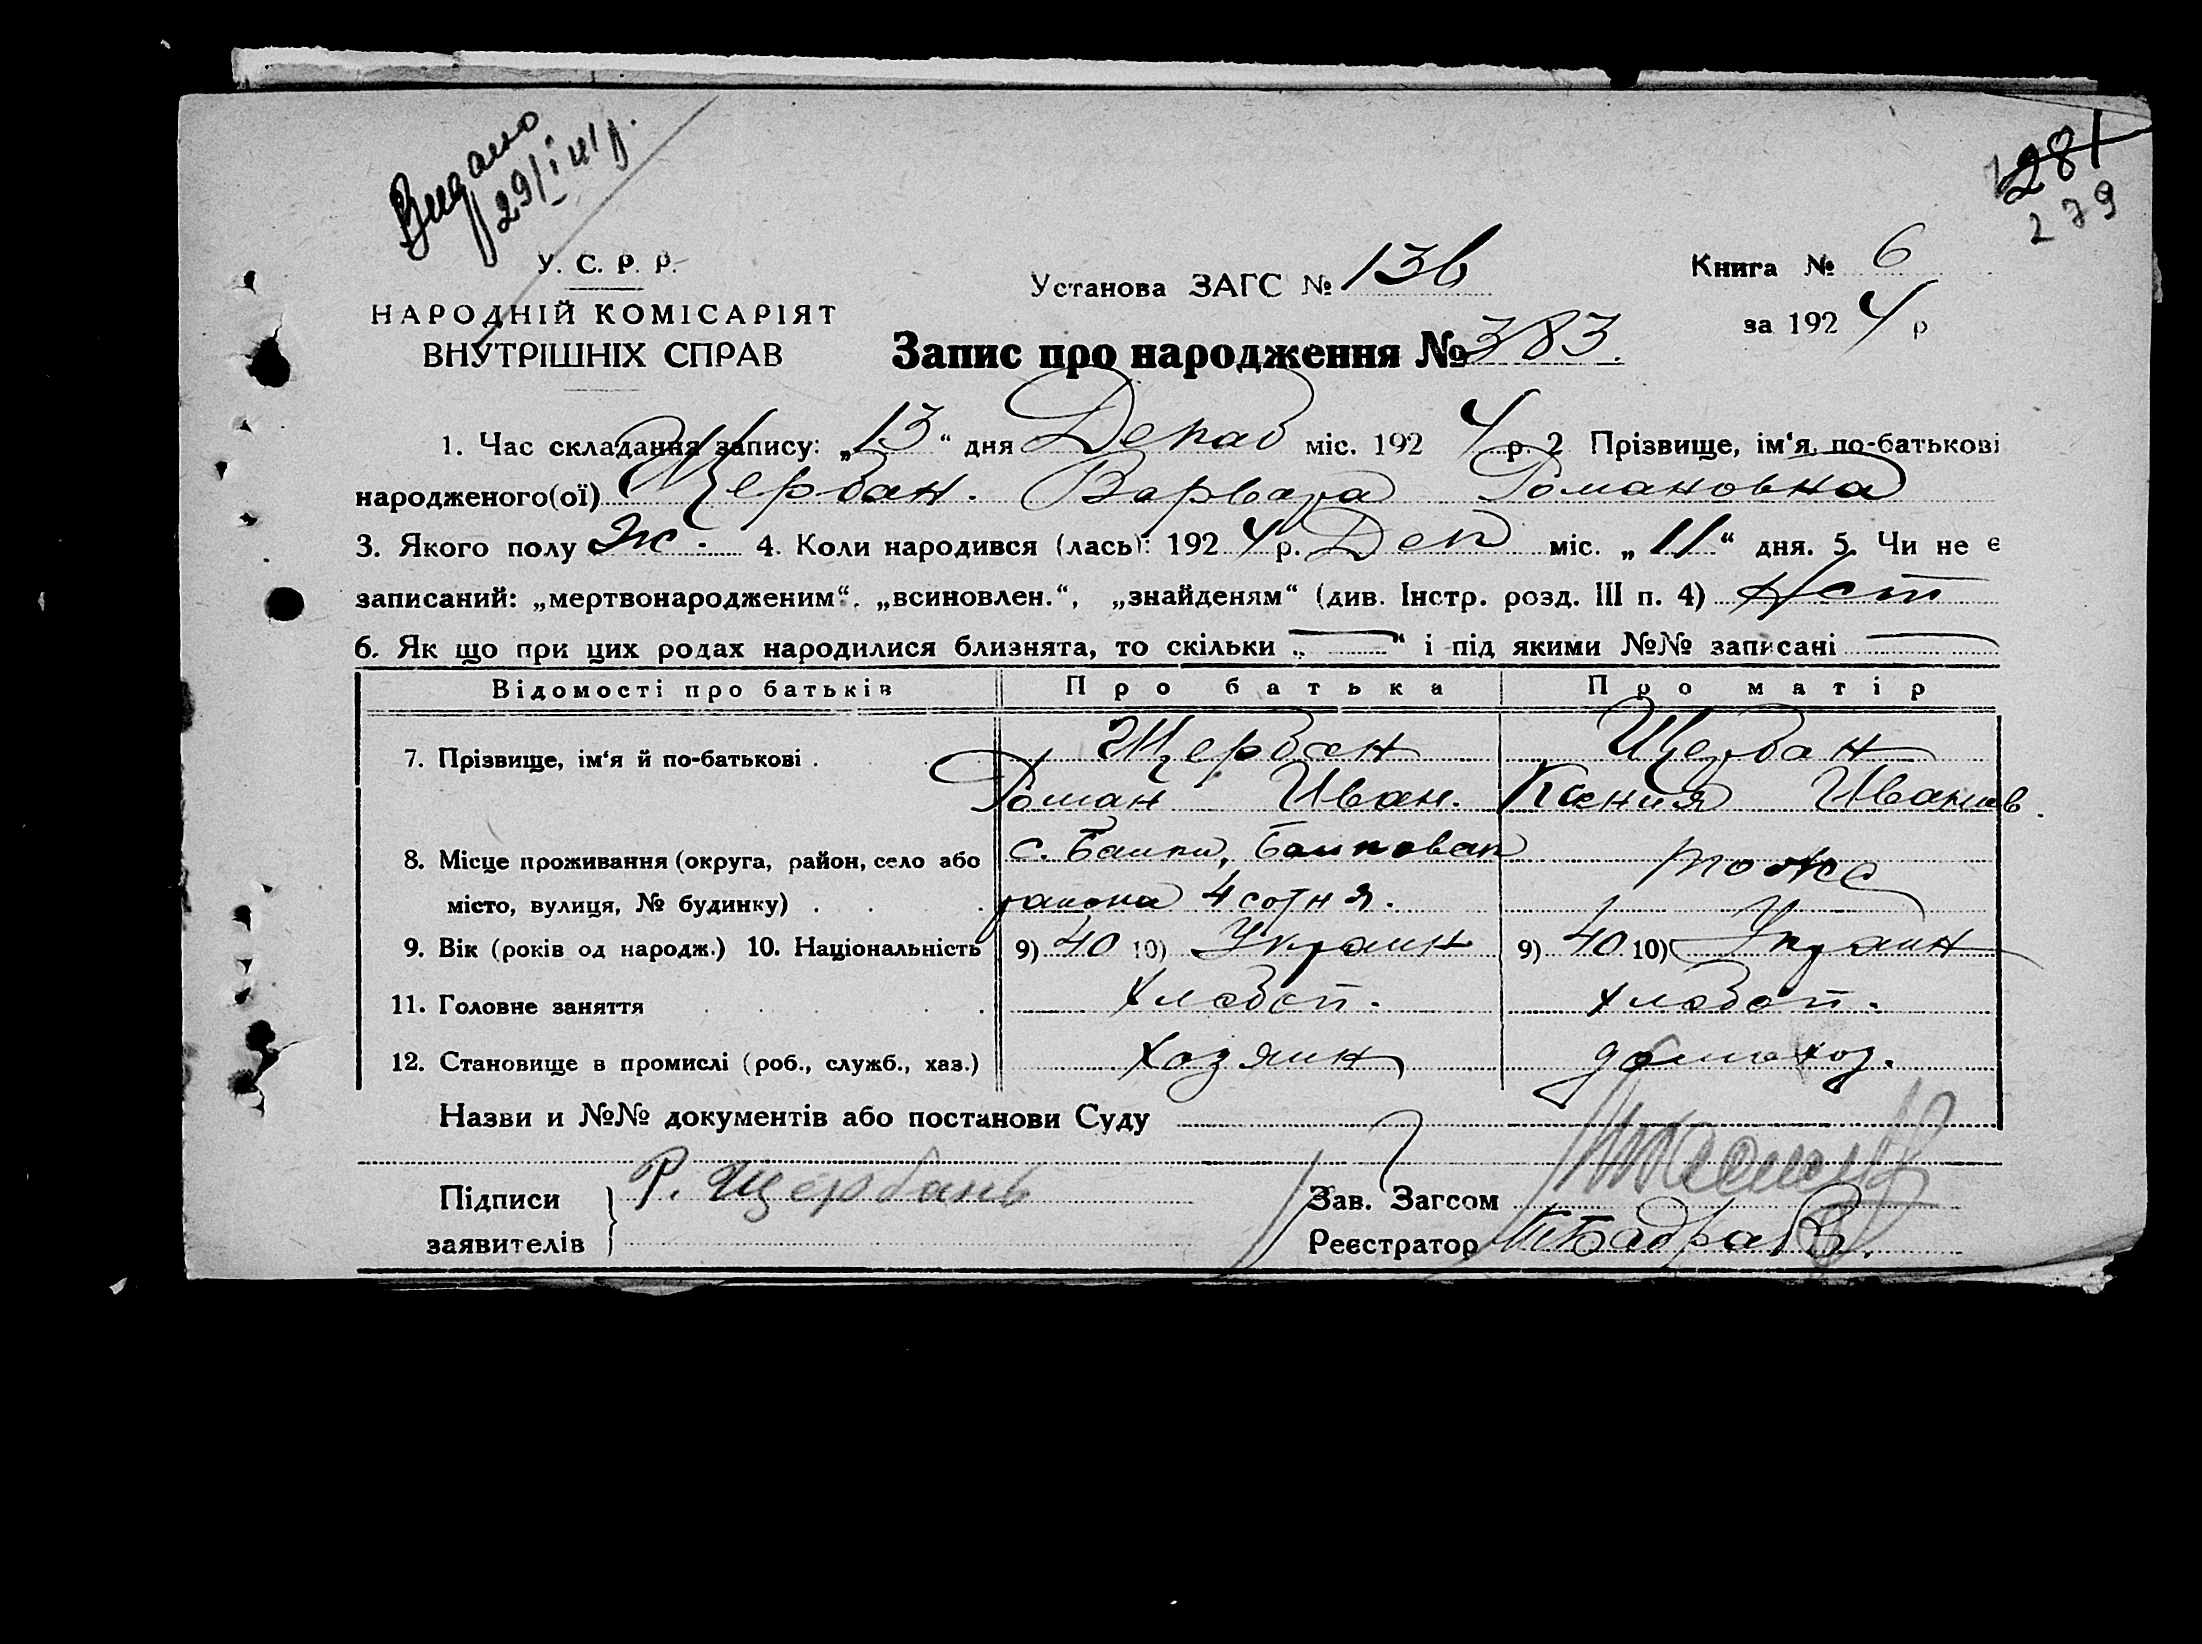 Видано
29/I 41 р.
281
279
У. С. Р. Р.
НАРОДНІЙ КОМІСАРІЯТ
ВНУТРІШНІХ СПРАВ
Установа ЗАГС № 136
Книга № 6
за 1924 р
Запис про народження № 383.
1. Час складання запису: „13“ дня Декаб міс. 1924 р. 2 Прізвище, ім‘я, по-батькові
народженого(ої) Щербан. Варвара Романовна
3. Якого полу Ж. 4. Коли народився (лась): 1924 р. Дек міс. „11“ дня. 5. Чи не є
записаний: „мертвонародженим“, „всиновлен.“, „знайденям“ (див. Інстр. розд. III п. 4) Нет
6. Як що при цих родах народилися близнята, то скільки „—“ і під якими №№ записані —
Відомості про батьків Про батька Про матір
7. Прізвище, ім‘я й по-батькові . Щербан Щербан
Роман Иван. Ксения Иванов.
8. Місце проживання (округа, район, село або с. Баики, Баиковак тоже
місто, вулиця, № будинку) . . . района 4 сотня.
9. Вік (років од народж.) 10. Національність 9) 40 10) Украин 9) 40 10) Украин
11. Головне заняття . . . . . Хлебоп. хлебоп.
12. Становище в промислі (роб., служб., хаз.) Хозяин домахоз.
Назви и №№ документів або постанови Суду
Підписи
заявителів
Р. Щербань
Зав. Загсом
Реєстратор